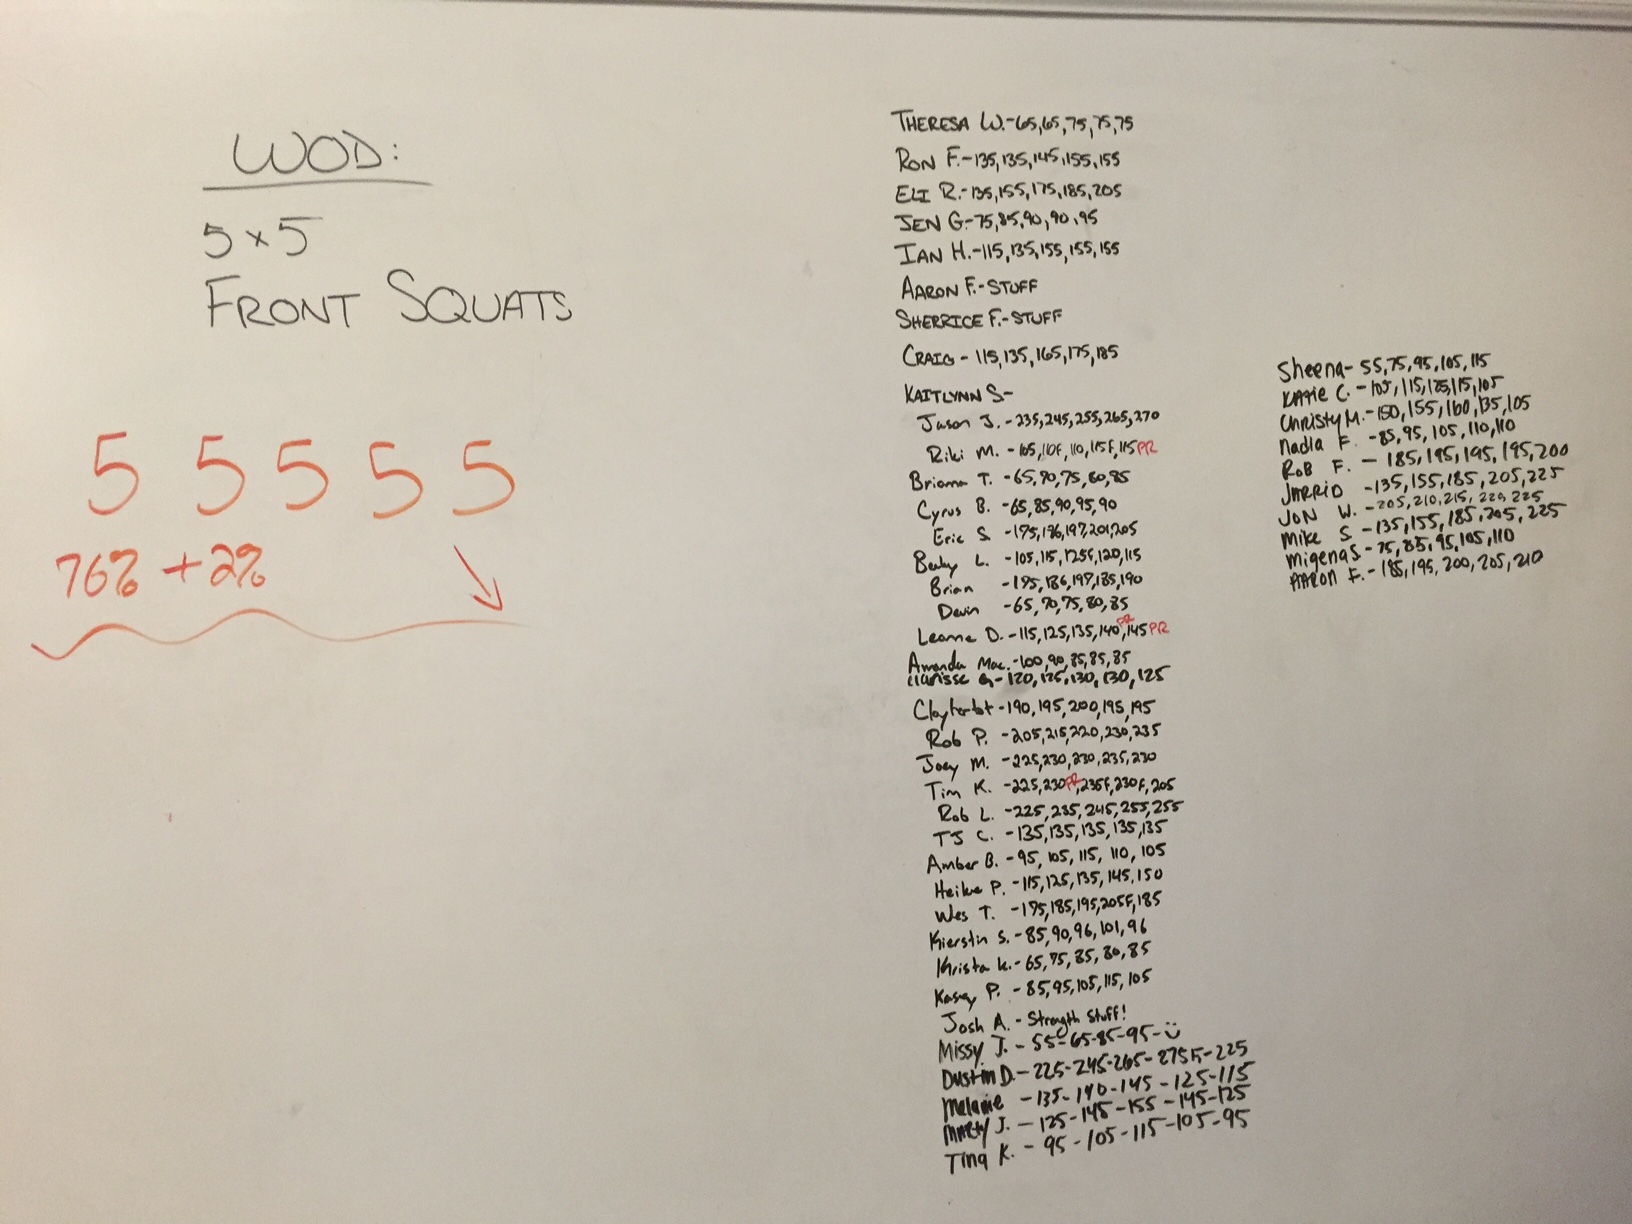 WOD:
5x5
FRONT SQUATS
5 5 5 5 5
76% +2%
THERESA W.-65,65,75,75,75
RON F.-135,135,145,155,155
ELI R.-135,155,175,185,205
JEN G-75,85,90,90,95
IAN H.-115,135,155,155,155
AARON F.-STUFF
SHERRICE F.-STUFF
CRAIG - 115,135,165,175,185
KAITLYNN S-
Jason J. -235,245,255,265,270
Riki M. -105,110F,110,115F,115PR
Brianna T. -65,70,75,80,85
Cyrus B. -65,85,90,95,90
Eric S. -175,186,197,201,205
Becky L. -105,115,125F,120,115
Brian -175,186,197,185,190
Devin -65,70,75,80,85
Leanne D. -115,125,135,140PR,145PR
Amanda Mac.-100,90,85,85,85
Clarisse G-120,125,130,130,125
Clayterbot -190,195,200,195,195
Rob P. -205,215,220,230,235
Joey M. -225,230,230,235,230
Tim K. -225,230PR,235F,230F,205
Rob L. -225,235,245,255,255
TJ C. -135,135,135,135,135
Amber B. -95, 105, 115, 110, 105
Heike P. -115,125,135,145,150
Wes T. -175,185,195,205F,185
Kierstin S.-85,90,96,101,96
Krista K.-65,75,85,80,85
Kasey P. -85,95,105,115,105
Josh A. - Strength Stuff!
Missy J. - 55-65-85-95-
Dustin D.-225-245-265-275F-225
Melanie -135-140-145-125-115
Marty J. -125-145-155-145-125
Tina K. - 95-105-115-105-95
Sheena- 55,75,95,105,115
KATIE C. -105,115,125,115,105
Christy M.-150,155,160,135,105
Nadia F. -85,95,105,110,110
ROB F. - 185,195,195,195,200
JARRID -135,155,185,205,225
JON W. -205,210,215,220,225
Mike S -135,155,185,205,225
Migena S-75,85,95,105,110
AARON F.-185,195,200,205,210